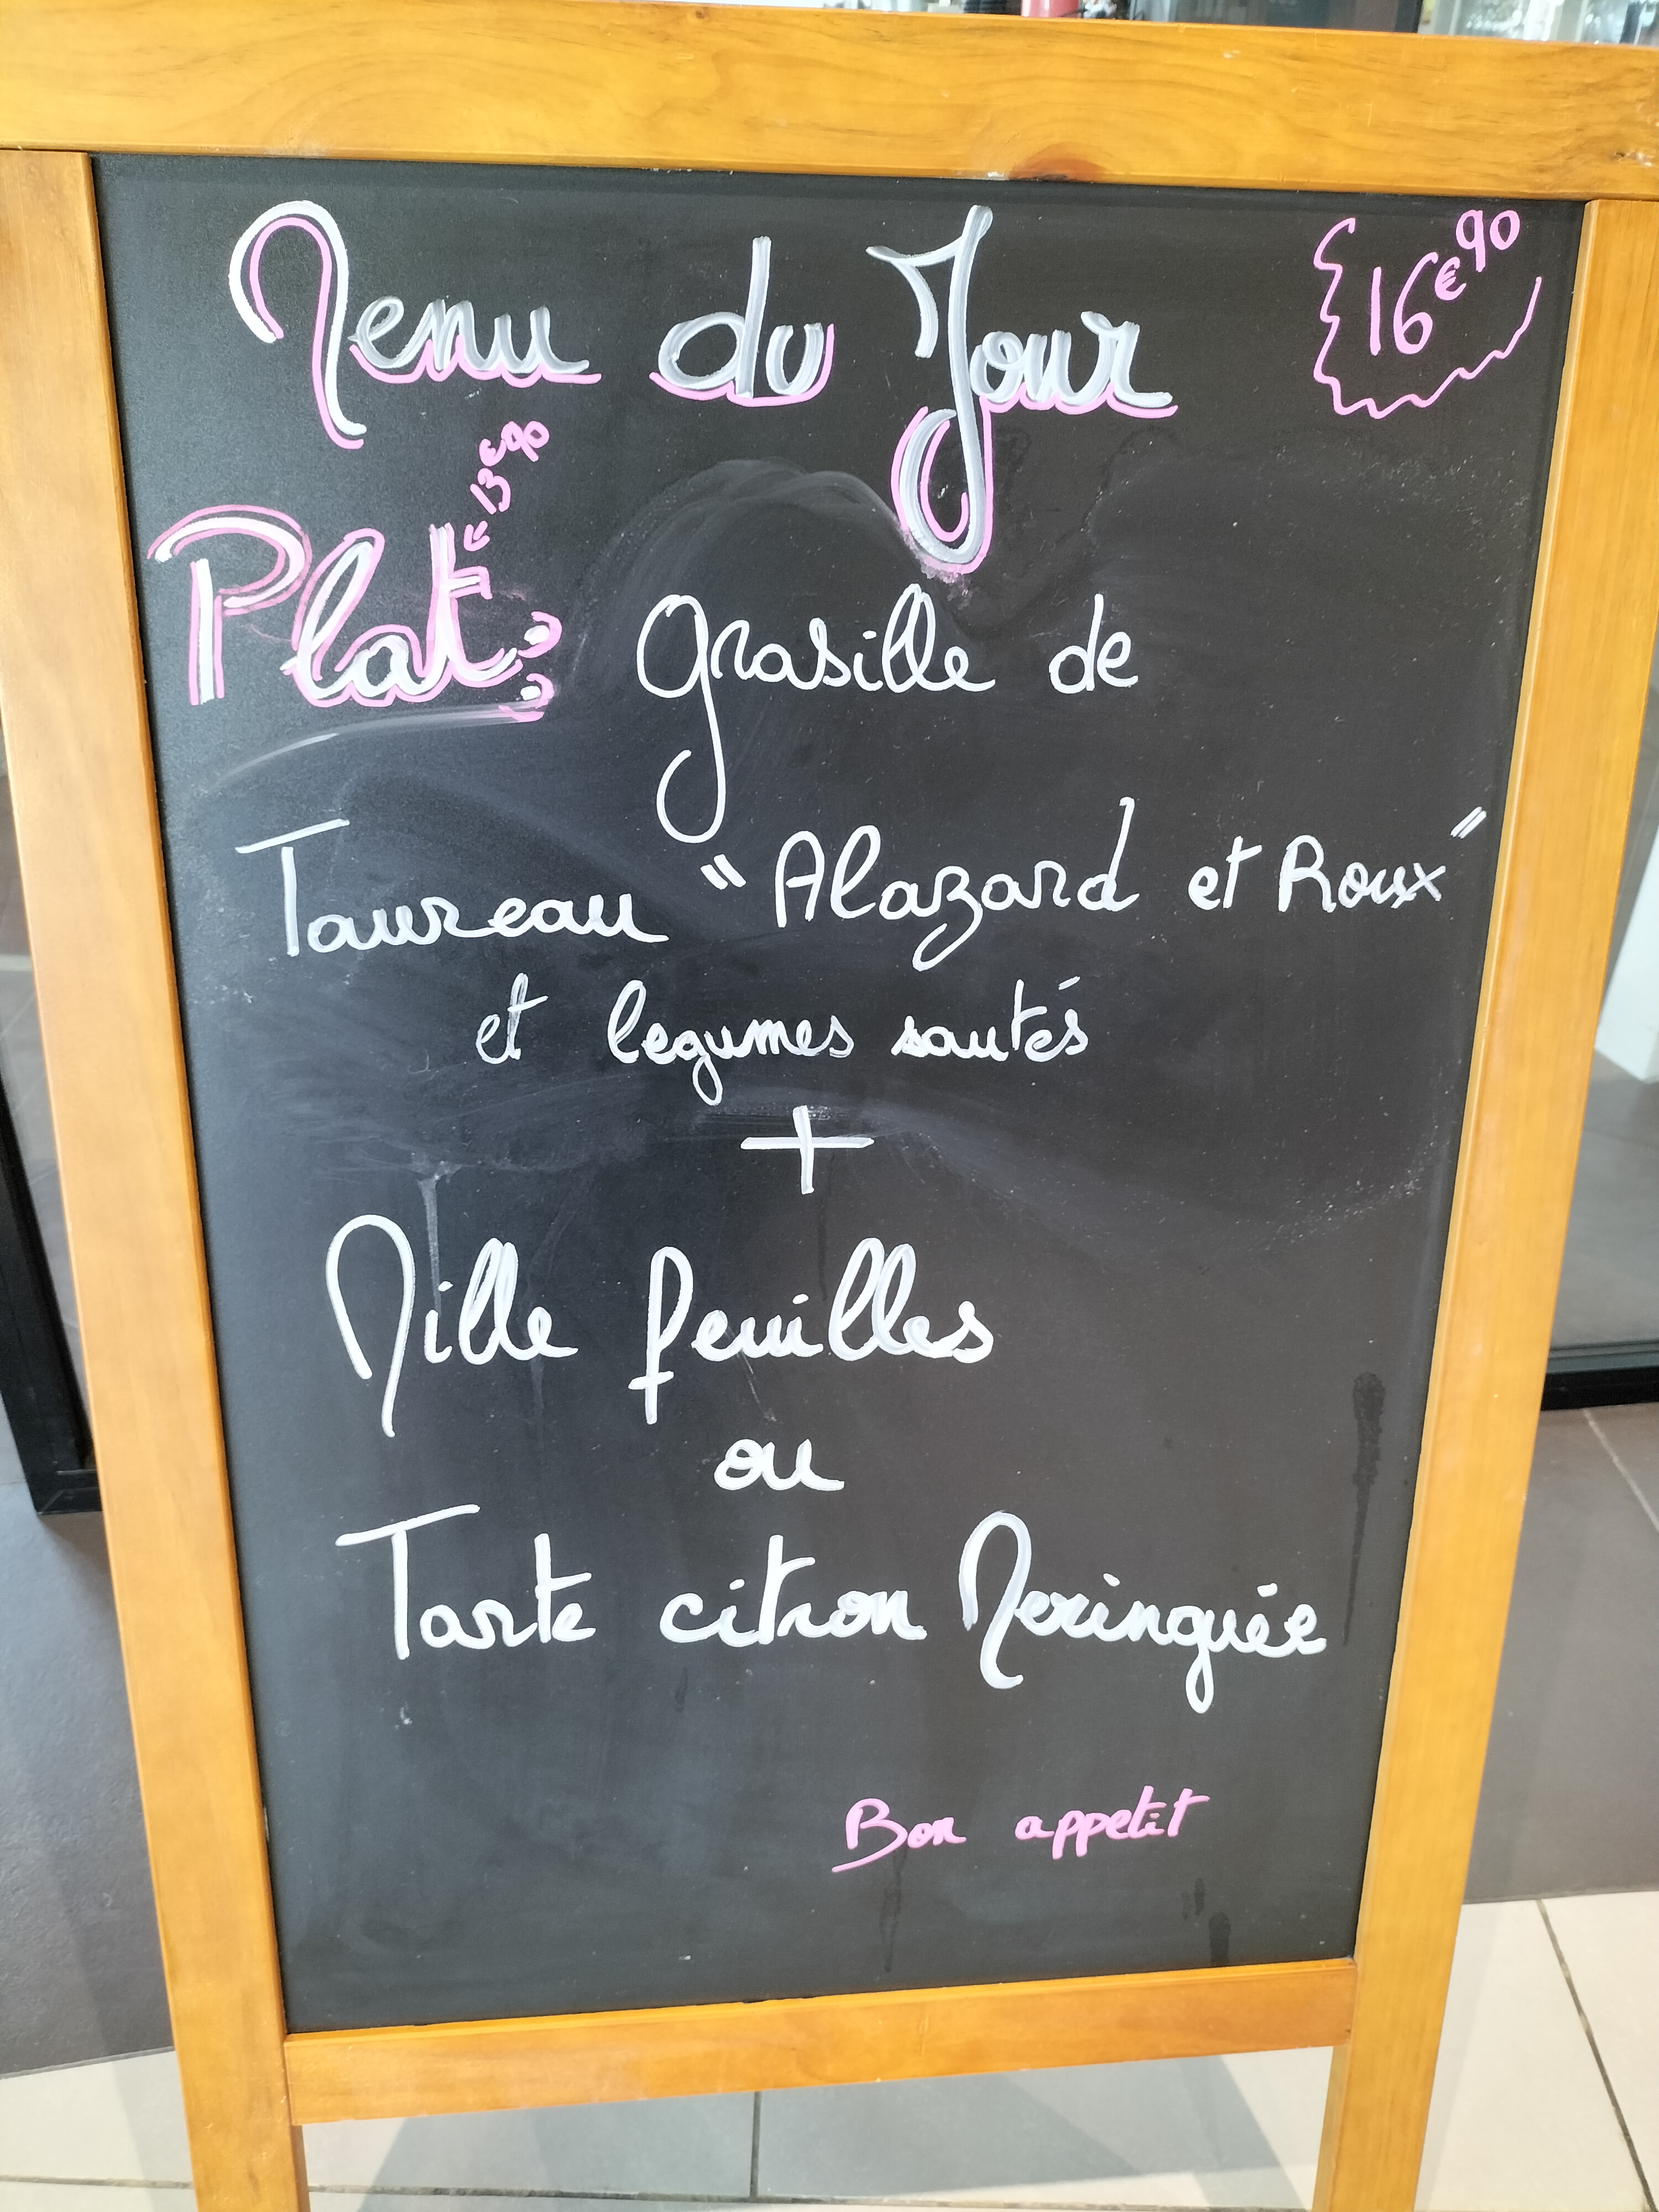 Menu du Jour
16€90
13€90
Plat : Grasille de
Taureau "Alazard et Roux"
et legumes sautés
+
Mille feuilles
ou
Tarte citron Meringuée
Bon appetit